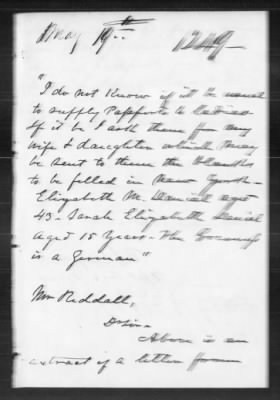 May 19
1249
"I do not Know if it be usual
to supply Passports to Ladies
If it be I ask them for my
wife & daughter which may
be sent to them the blanks
to be filled in New York -
Elizabeth M. Daniel aged
43 - Sarah Elizabeth Daniel
aged 15 Years - The
is a German"
Mr Riddall,
D Sir -
Above is an
extract of a letter from